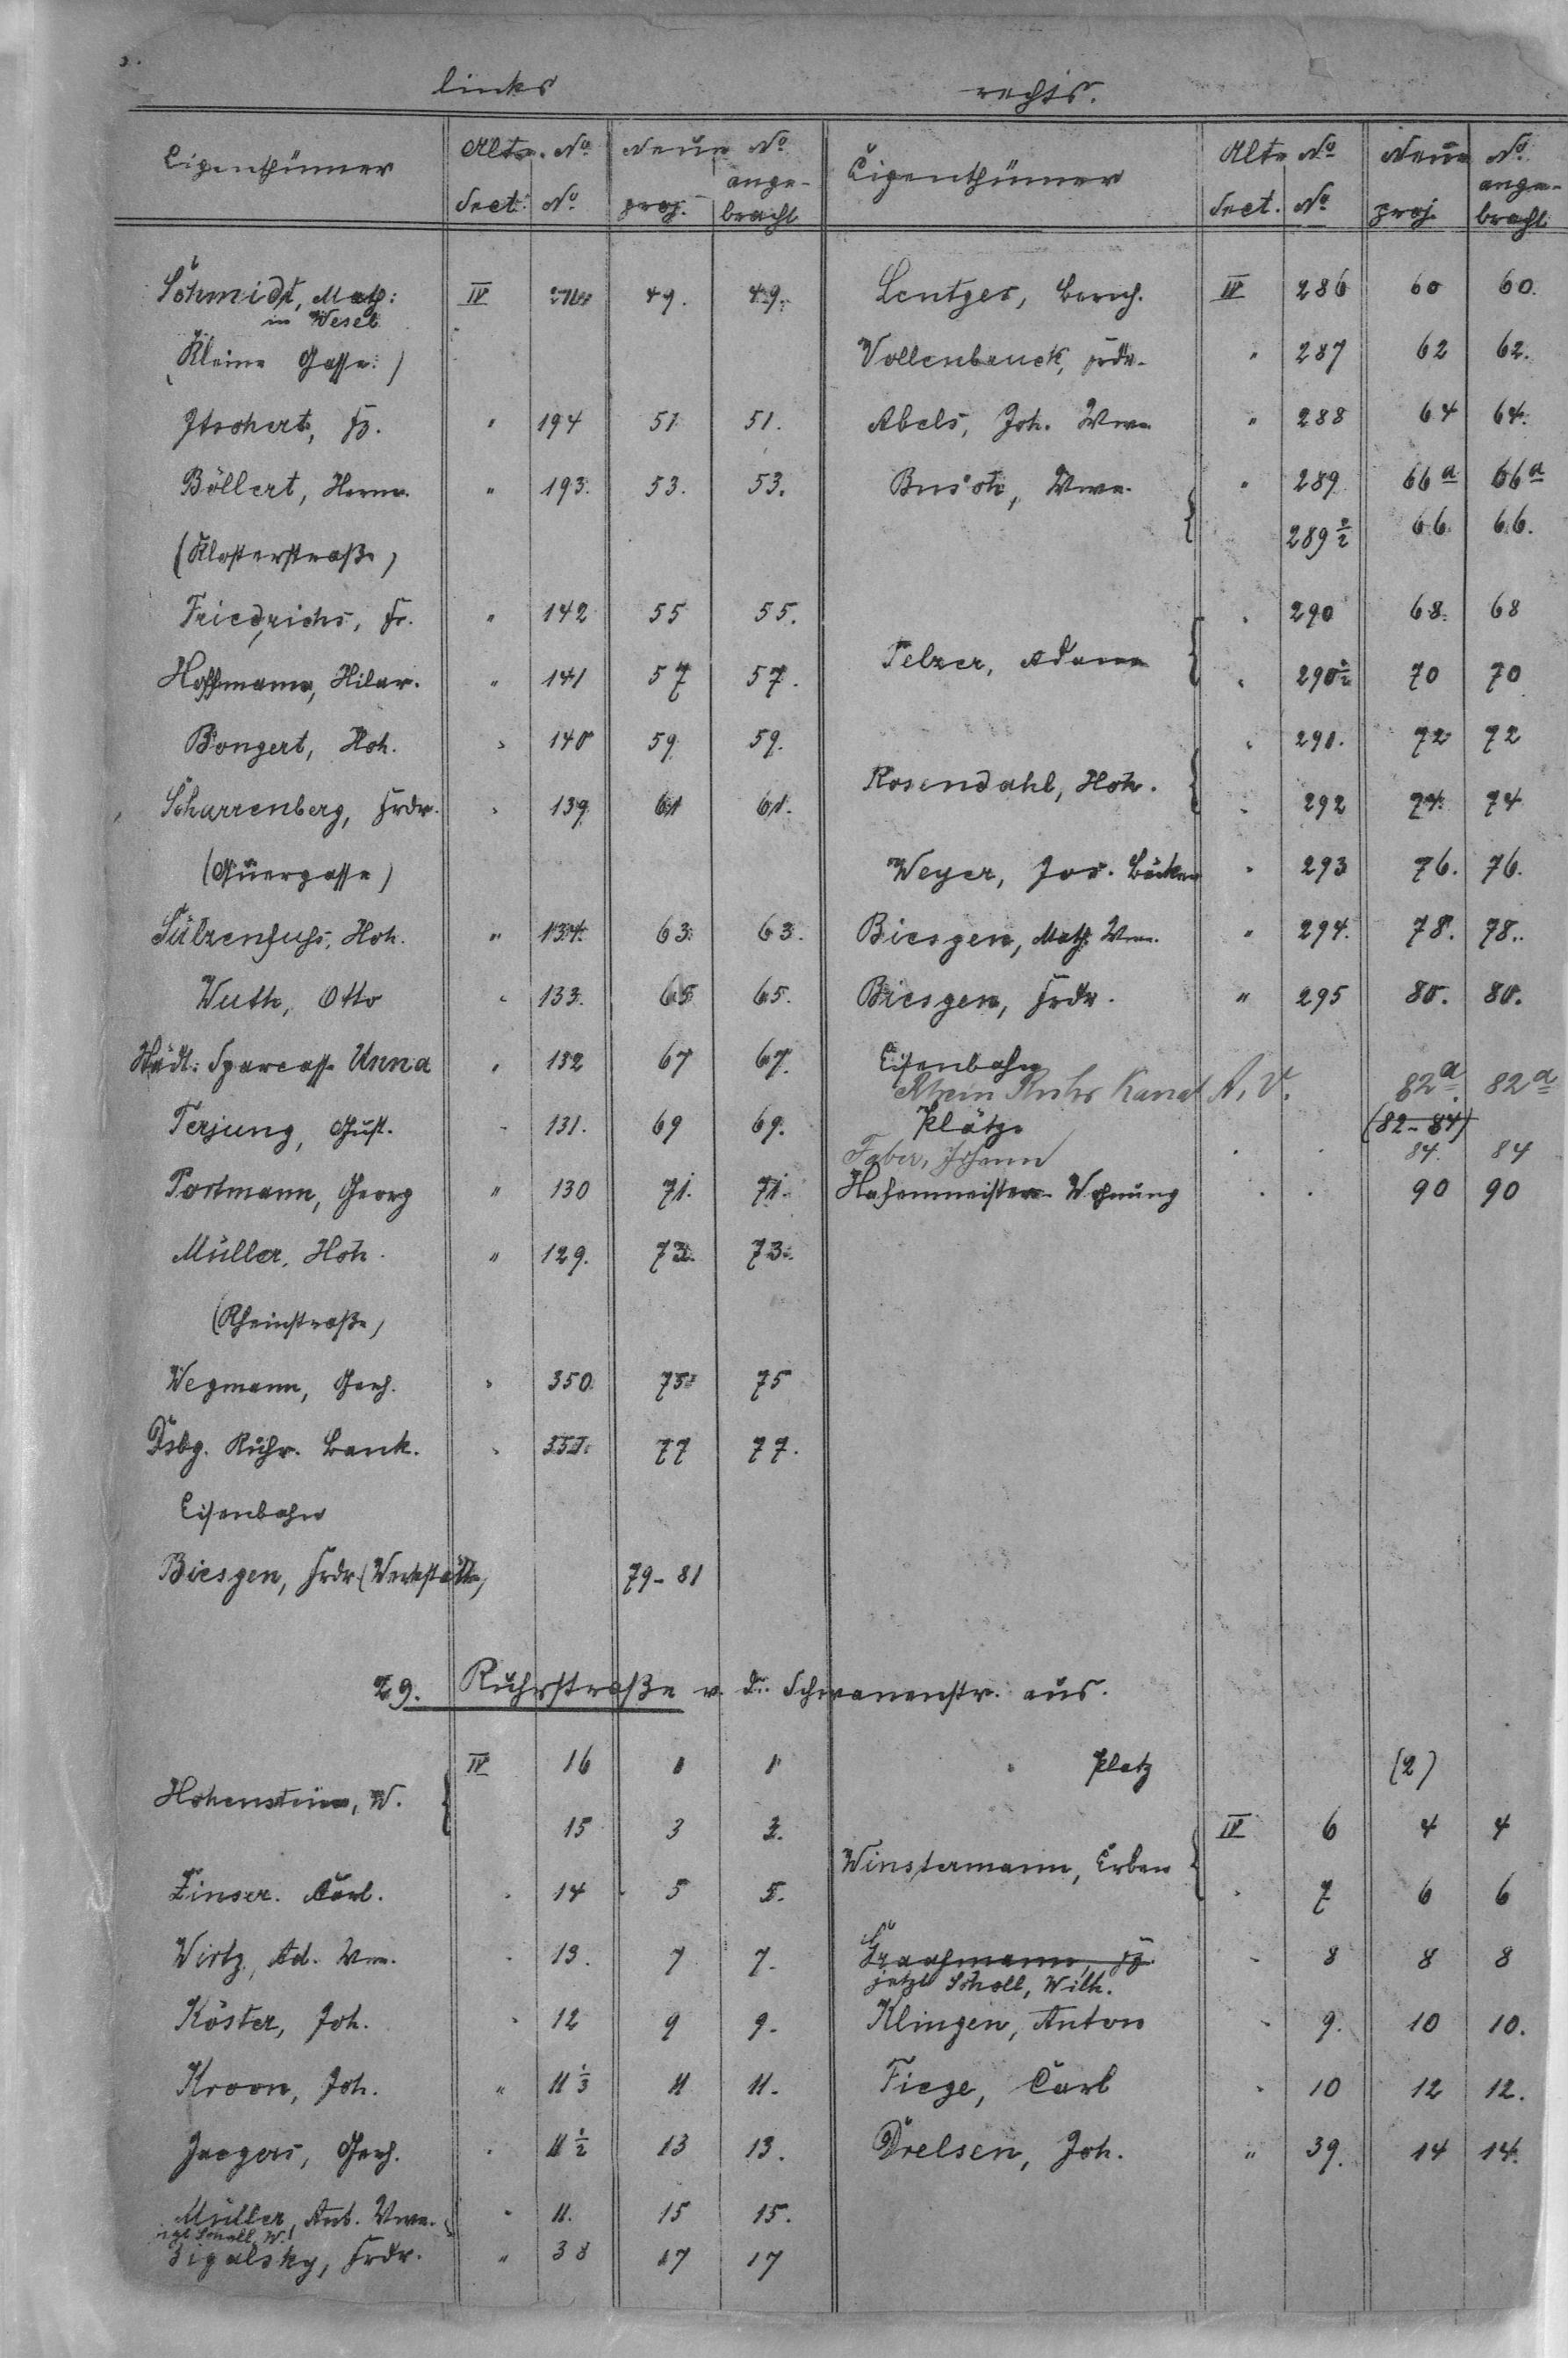 links rechts.
Eigenthümer Alte No Neue No Eigenthümer Alte No Neue No
Sect. No proj. ange-bracht Sect. No proj. ange-bracht
Schmidt, Math: IV 49. 49. Lentges, Bernh. IV 286 60 60.
in Wesel
(Kleine Gasse:) Vollenbruck, Frdr. " 287 62 62.
Itschert, Fz. " 194 51 51. Abels, Joh. Wwe " 288 64 64.
Böllert, Herm. " 193. 53. 53. Busch, Wwe. " 289 66a 66a
(Klosterstraße) 289 1/2 66 66.
Friedrichs, Fr. " 142 55 55. " 290 68. 68
Pelzer, Adam
Hoffmann, Hilar. " 141 57 57. " 290 1/2 70 70
Bongert, Hch. " 140 59 59. " 291. 72 72
Rosendahl, Hch.
Scharrenberg, Frdr. " 139 61 61. " 292 74. 74
(Quergasse) Weyer, Jos. Bäcker " 293 76. 76.
Sülzenfuhs, Hch. " 134. 63. 63. Biesgen, Math. Wwe. " 294. 78. 78.
Wuth, Otto " 133. 65 65. Biesgen, Frdr. " 295 80. 80.
Städt: Sparcasse Unna " 132 67 67. Eisenbahn
Rhein Ruhr Kanal A. V. 82a 82a
Terjung, Gust. " 131. 69 69. Plätze (82-84)
Faber, Johann 84. 84
Portmann, Georg " 130 71. 71. Hafenmeister-Wohnung 90 90
Müller, Hch. " 129. 73. 73.
(Rheinstraße)
Wegmann, Gerh. " 350 75 75
Dsbg. Ruhr. Bank. " 351. 77 77.
Eisenbahn
Biesgen, Frdr. (Werkstätte) 79-81
29. Ruhrstraße v. d. Schwanenstr. aus.
IV 16 1 1 " Platz (2)
Hohenstein, W.
15 3 3. IV 6 4 4
Winstermann, Erben
Zinser. Carl. " 14 5 5. " 7 6 6
Wirtz, Ad. Wwe. " 13. 7 7. Graafmann, Fz. " 8 8 8
jetzt Scholl, Wilh.
Köster, Joh. " 12 9 9. Klingen, Anton " 9. 10 10.
Kroon, Joh. " 11 1/3 11 11. Fiege, Carl " 10 12 12.
Jaegers, Gerh. " 11 1/2 13 13. Drelsen, Joh. " 39. 14 14.
Müller, Ant. Wwe. " 11. 15 15.
jzt Scholl, W!
Zigalsky, Frdr. " 38 17 17